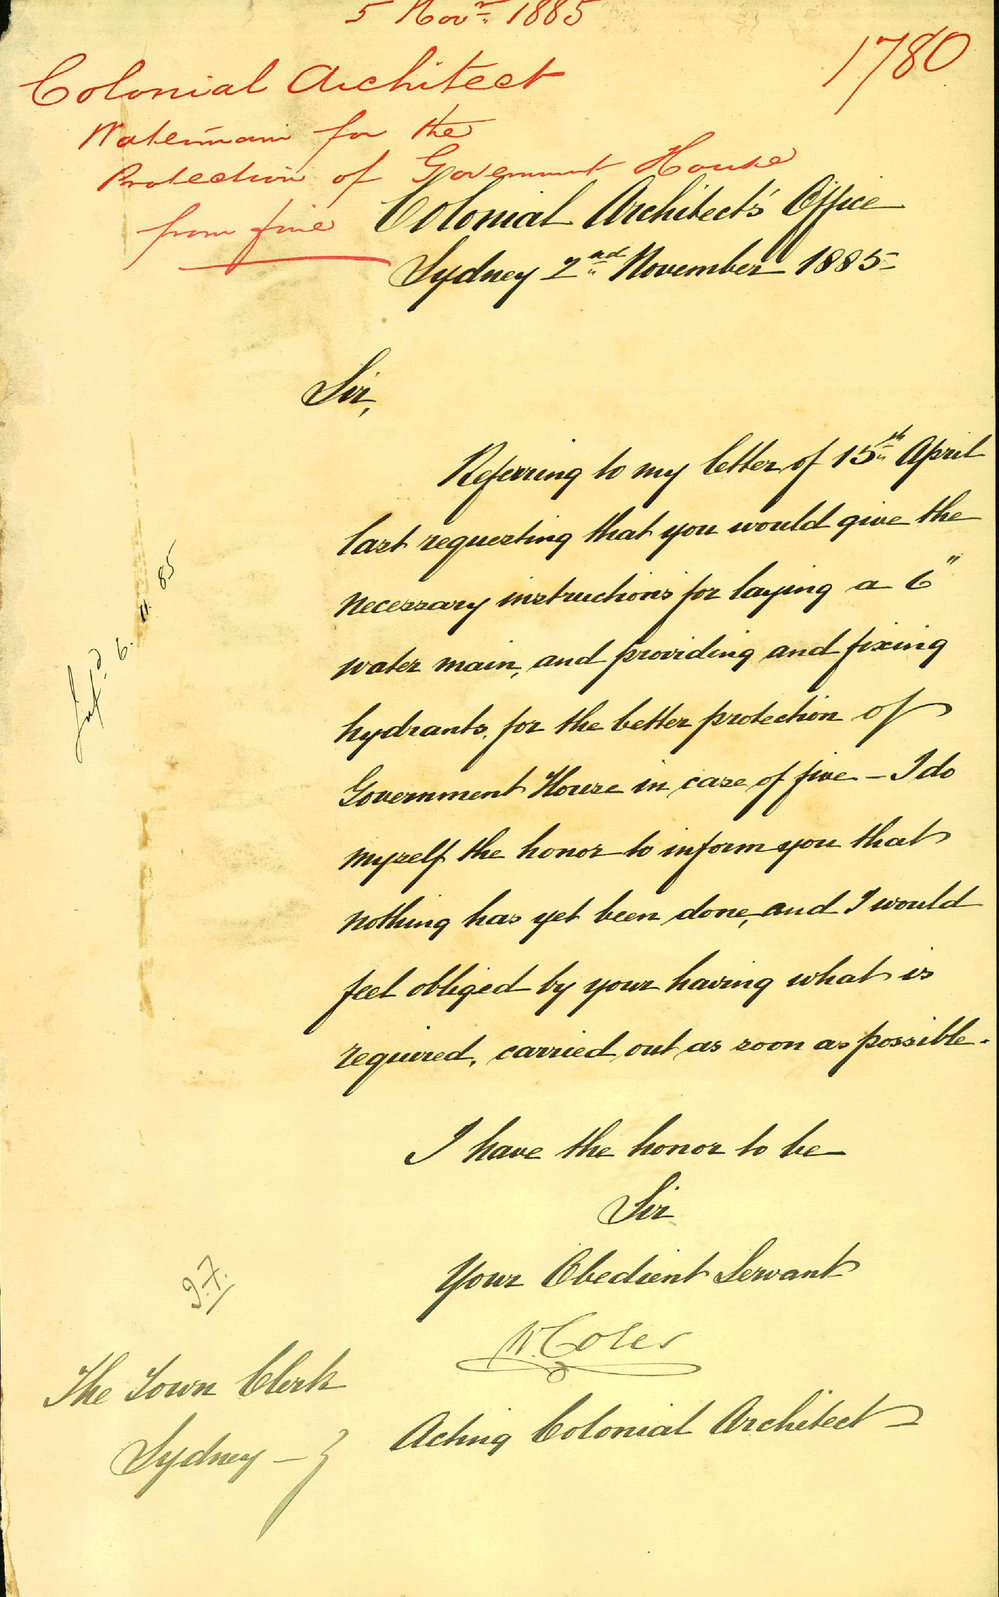 5 Novr. 1885
1780
Colonial Architect
Watermain for the
Protection of Government House
from fire
Colonial Architect's Office
Sydney 2nd November 1885
Sir,
Referring to my letter of 15th April
last requesting that you would give the
necessary instructions for laying a 6"
water main, and providing and fixing
hydrants, for the better protection of
Government House in case of fire – I do
myself the honor to inform you that
nothing has yet been done, and I would
feel obliged by your having what is
required, carried out as soon as possible.
Infd. 6. 11. 85
I have the honor to be
Sir
Your Obedient Servant
W. Coles
Acting Colonial Architect
The Town Clerk
Sydney –